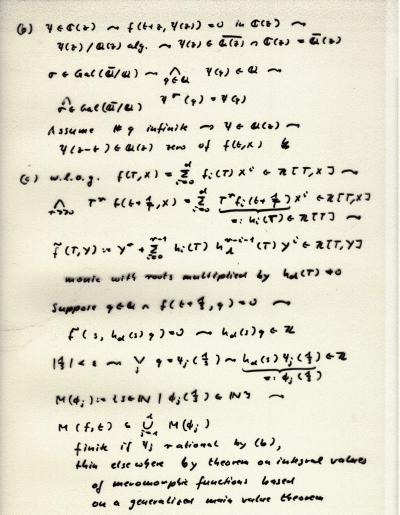 (b) ψ ∈ ℂ(z) ⤳ f(t+z, ψ(z)) = 0 in ℂ(z) ⤳
ψ(z) / ℚ(z) alg. ⤳ ψ(z) ∈ \overline{ℚ(z)} ∩ ℂ(z) = \overline{ℚ}(z)
σ ∈ Gal(\overline{ℚ}/ℚ) ⤳ ⋀_{q∈ℚ} ψ(q) ∈ ℚ ⤳
⋀_{σ∈Gal(\overline{ℚ}/ℚ)} ψ^σ(q) = ψ(q)
Assume # q infinite ⤳ ψ ∈ ℚ(z) ⤳
ψ(z-t) ∈ ℚ(z) zero of f(t,x)
(c) w.l.o.g. f(T,X) = Σ_{i=0}^{d} f_i(T) X^i ∈ ℤ[T,X] ⤳
T^r f(t+1/T, X) = Σ_{i=0}^{d} T^r f_i(t+1/T) X^i ∈ ℤ[T,X]
=: h_i(T) ∈ ℤ[T] ⤳
h_i(T) h_d^{r-i-1}(T) Y^i ∈ ℤ[T,Y]
monic with roots multiplied by h_d(T) ≠ 0
Suppose q ∈ ℚ ∧ f(t+1/s, q) = 0 ⤳
f̃(s, h_d(s) q) = 0 ⤳ h_d(s) q ∈ ℤ
|1/s| < ε ⤳ ⋁_j q = ψ_j(1/s) ⤳ h_d(s) ψ_j(1/s) ∈ ℤ
=: φ_j(1/s)
M(φ_j) := {s ∈ ℕ | φ_j(1/s) ∈ ℕ} ⤳
M(f,t) ⊂ ⋃_{j=1}^{d} M(φ_j)
finite if ψ_j rational by (b),
thin elsewhere by theorem on integral values
of meromorphic functions based
on a generalized main value theorem